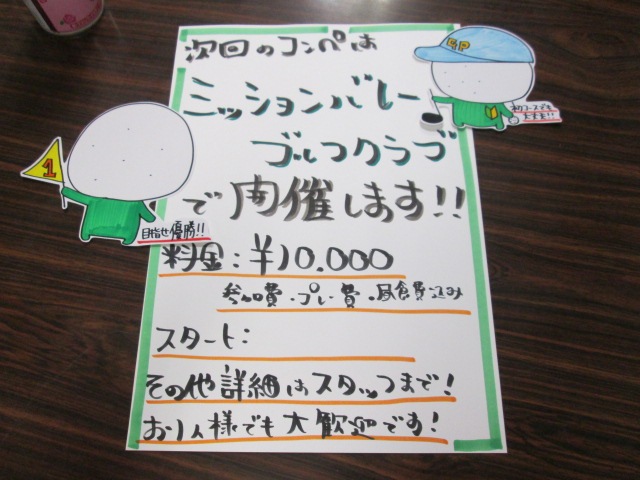 次回のコンペは
ミッションバレー
ゴルフクラブ
で開催します!!
料金:¥10.000
参加費・プレー費・昼食費込み
スタート:
その他詳細はスタッフまで!
お1人様でも大歓迎です!
1
目指せ優勝!!
GP
初コースでも
大丈夫!!